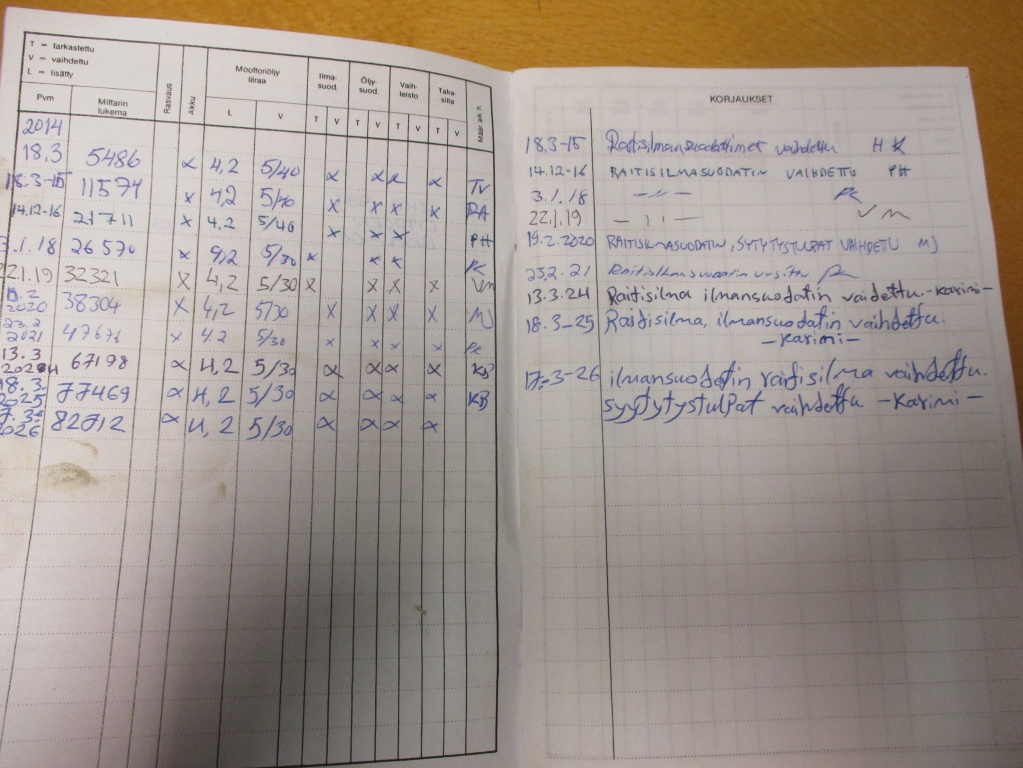 T = tarkastettu
V = vaihdettu
L = lisätty
Pvm Mittarin lukema Rasvaus Akku Moottoriöljy litraa L V Ilma-suod. T V Öljy-suod. T V Vaih-teisto T V Taka-silta T V
2014
18.3 5486 x 4,2 5/40 x x x x TV
18.3-15 11574 x 4,2 5/40 x x x x PA
14.12-16 21711 x 4.2 5/40 x x x PH
3.1.18 26570 x 4,2 5/30 x x x
22.1.19 32321 X 4,2 5/30 X X X x Vm
19.2 2020 38304 X 4,2 5/30 X X X X MJ
23.2 2021 47676 x 4.2 5/30 x x x x
13.3 2024 67198 x 4,2 5/30 x x x x KB
18.3 2025 77469 x 4,2 5/30 x x x x KB
17.3 2026 82712 x 4,2 5/30 x x x x
KORJAUKSET
18.3-15 Raitisilmansuodattimet vaihdettu H K
14.12-16 RAITISILMASUODATIN VAIHDETTU PH
3.1.18 -"-
22.1.19 - " - Vm
19.2.2020 RAITISILMASUODATIN, SYTYTYSTULPAT VAIHDETTU MJ
23.2.21 Raitisilmasuodatin
13.3.24 Raitisilma ilmansuodatin vaidettu -karimi-
18.3-25 Raidisilma, ilmansuodatin vaihdettu.
-karimi-
17.3-26 ilmansuodatin raidisilma vaihdettu.
syytytystulpat vaihdettu -karimi-